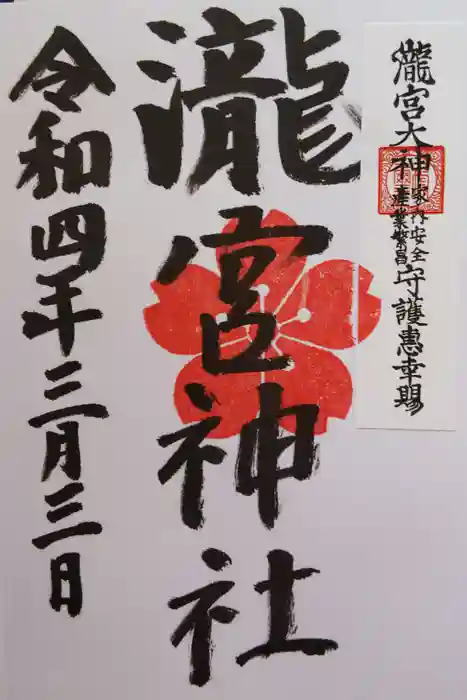 瀧宮大神家内安全産業繁昌守護惠幸賜
瀧宮神社
令和四年三月三日